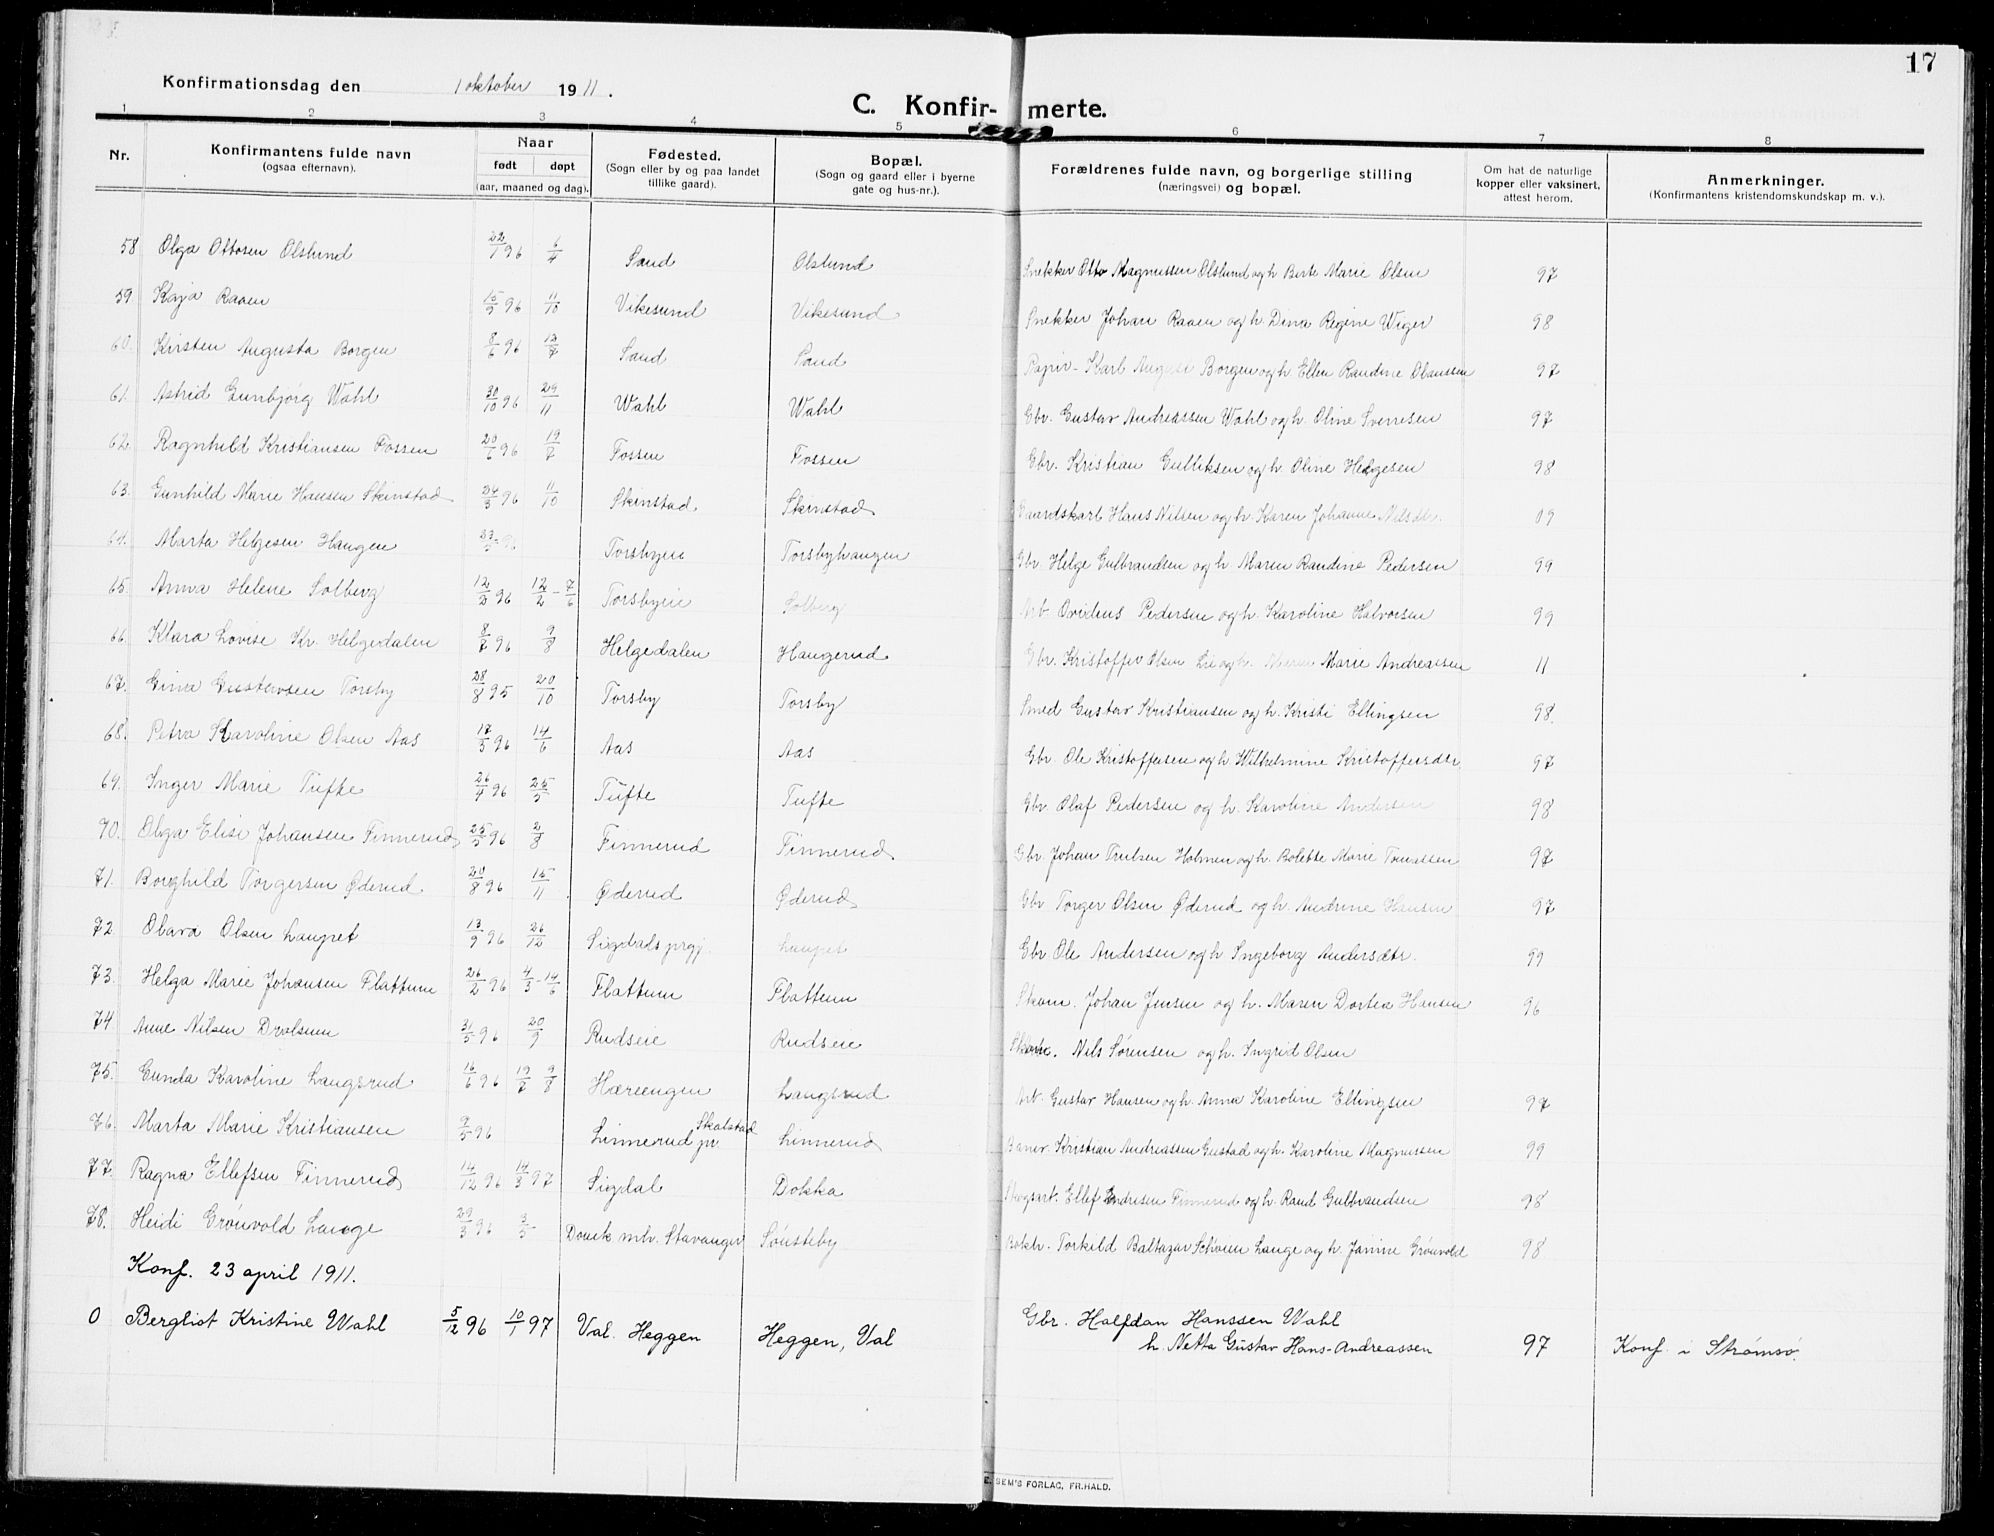 17
Konfirmationsdag den 1 oktober 1911.
C. Konfir- merte.
1 2 3 4 5 6 7 8
Nr. Konfirmantens fulde navn (ogsaa efternavn). Naar født døpt (aar, maaned og dag). Fødested. (Sogn eller by og paa landet tillike gaard). Bopæl. (Sogn og gaard eller i byerne gate og hus-nr.). Forældrenes fulde navn, og borgerlige stilling (næringsvei) og bopæl. Om hat de naturlige kopper eller vaksinert, attest herom. Anmerkninger. (Konfirmantens kristendomskundskap m. v.).
58 Olga Ottosen Olslund 22/1 96 6/4 Sand Olslund Snekker Otto Magnussen Olslund og h. Berte Marie Olsen 97
59 Kaja Raaen 15/9 96 11/10 Vikesund Vikesund Snekker Johan Raaen og h. Dina Regine Wiger 98
60. Kirsten Augusta Borgen 8/6 96 12/7 Sand Sand Papir- Karl August Borgen og h. Ellen Randine Olaussen 97
61. Astrid Gunbjørg Wahl 30/10 96 29/11 Wahl Wahl Gbr. Gustav Andreassen Wahl og h. Oline Sverresen 97
62. Ragnhild Kristiansen Fossen 20/6 96 19/7 Fossen Fossen Gbr. Kristian Gulliksen og h. Oline Helgesen 98
63. Gunhild Marie Hansen Skinstad 24/3 96 11/10 Skinstad Skinstad Gaardskarl Hans Nilsen og h. Karen Johanne Nilsdtr. 09
64. Marta Helgesen Haugen 23/5 96 Torsbyeie Torsbyhaugen Gbr. Helge Gulbrandsen og h. Maren Randine Pedersen 99
65. Anna Helene Solberg 12/2 96 12/2 - 7/6 Torsbyeie Solberg Arb. Ovidius Pedersen og h. Karoline Halvorsen 99
66. Klara Lovise Kr. Helgedalen 8/7 96 9/8 Helgedalen Haugerud Gbr. Kristoffer Olsen Lie og h. Maren Marie Andreassen 11
67. Gina Gustavsen Torsby 28/8 95 20/10 Torsby Torsby Smed Gustav Kristiansen og h. Kristi Ellingsen 98.
68. Petra Karoline Olsen Aas 17/5 96 14/6 Aas Aas Gbr. Ole Kristoffersen og h. Wilhelmine Kristoffersdtr. 97
69. Inger Marie Tufte 26/4 96 25/5 Tufte Tufte Gbr. Olaf Pedersen og h. Karoline Andersen 98
70. Olga Elise Johansen Finnerud 25/5 96 2/8 Finnerud Finnerud Gbr. Johan Trulsen Holmen og h. Bolette Marie Tomassen 97
71. Borghild Torgersen Øderud 20/8 96 15/11 Øderud Øderud Gbr. Torger Olsen Øderud og h. Andrine Hansen 97
72. Olava Olsen Laupet 13/9 96 26/12 Sigdals prgj. Laupet Gbr. Ole Andersen og h. Ingeborg Andersdtr. 99
73. Helga Marie Johansen Flattum 26/2 96 4/3 - 14/6 Flattum Flattum Skom. Johan Jensen og h. Maren Dortea Hansen 96
74 Anne Nilsen Drolsum 31/5 96 20/9 Rudseie Rudseie Nils Sørensen og h. Ingrid Olsen
75. Gunda Karoline Langsrud 16/6 96 19/7 9/8 Hæreengen Langsrud Arb. Gustav Hansen og h. Anna Karoline Ellingsen 97
76. Marta Marie Kristiansen 7/5 96 Linnerud Skalstad pr. Linnerud Banev. Kristian Andreassen Gustad og h. Karoline Magnussen 99
77. Ragna Ellefsen Finnerud 14/12 96 14/3 97 Sigdal Dokka Skogsarb. Ellef Endresen Finnerud og h. Rand Gulbrandsen 98
78. Heidi Grønvold Lange 29/3 96 3/5 Domk. mh. Stavanger Sønsteby Bokh. Torkild Baltazar Lange og h. Janine Grønvold 98
Konf. 23 april 1911.
0 Bergliot Kristine Wahl 5/12 96 10/1 97 Val. Heggen Heggen, Val Gbr. Halfdan Hanssen Wahl
h. Netta Gustav Hans-Andreassen 97 Konf. i Strømsø.
E. SEM'S FORLAG, FR.HALD.